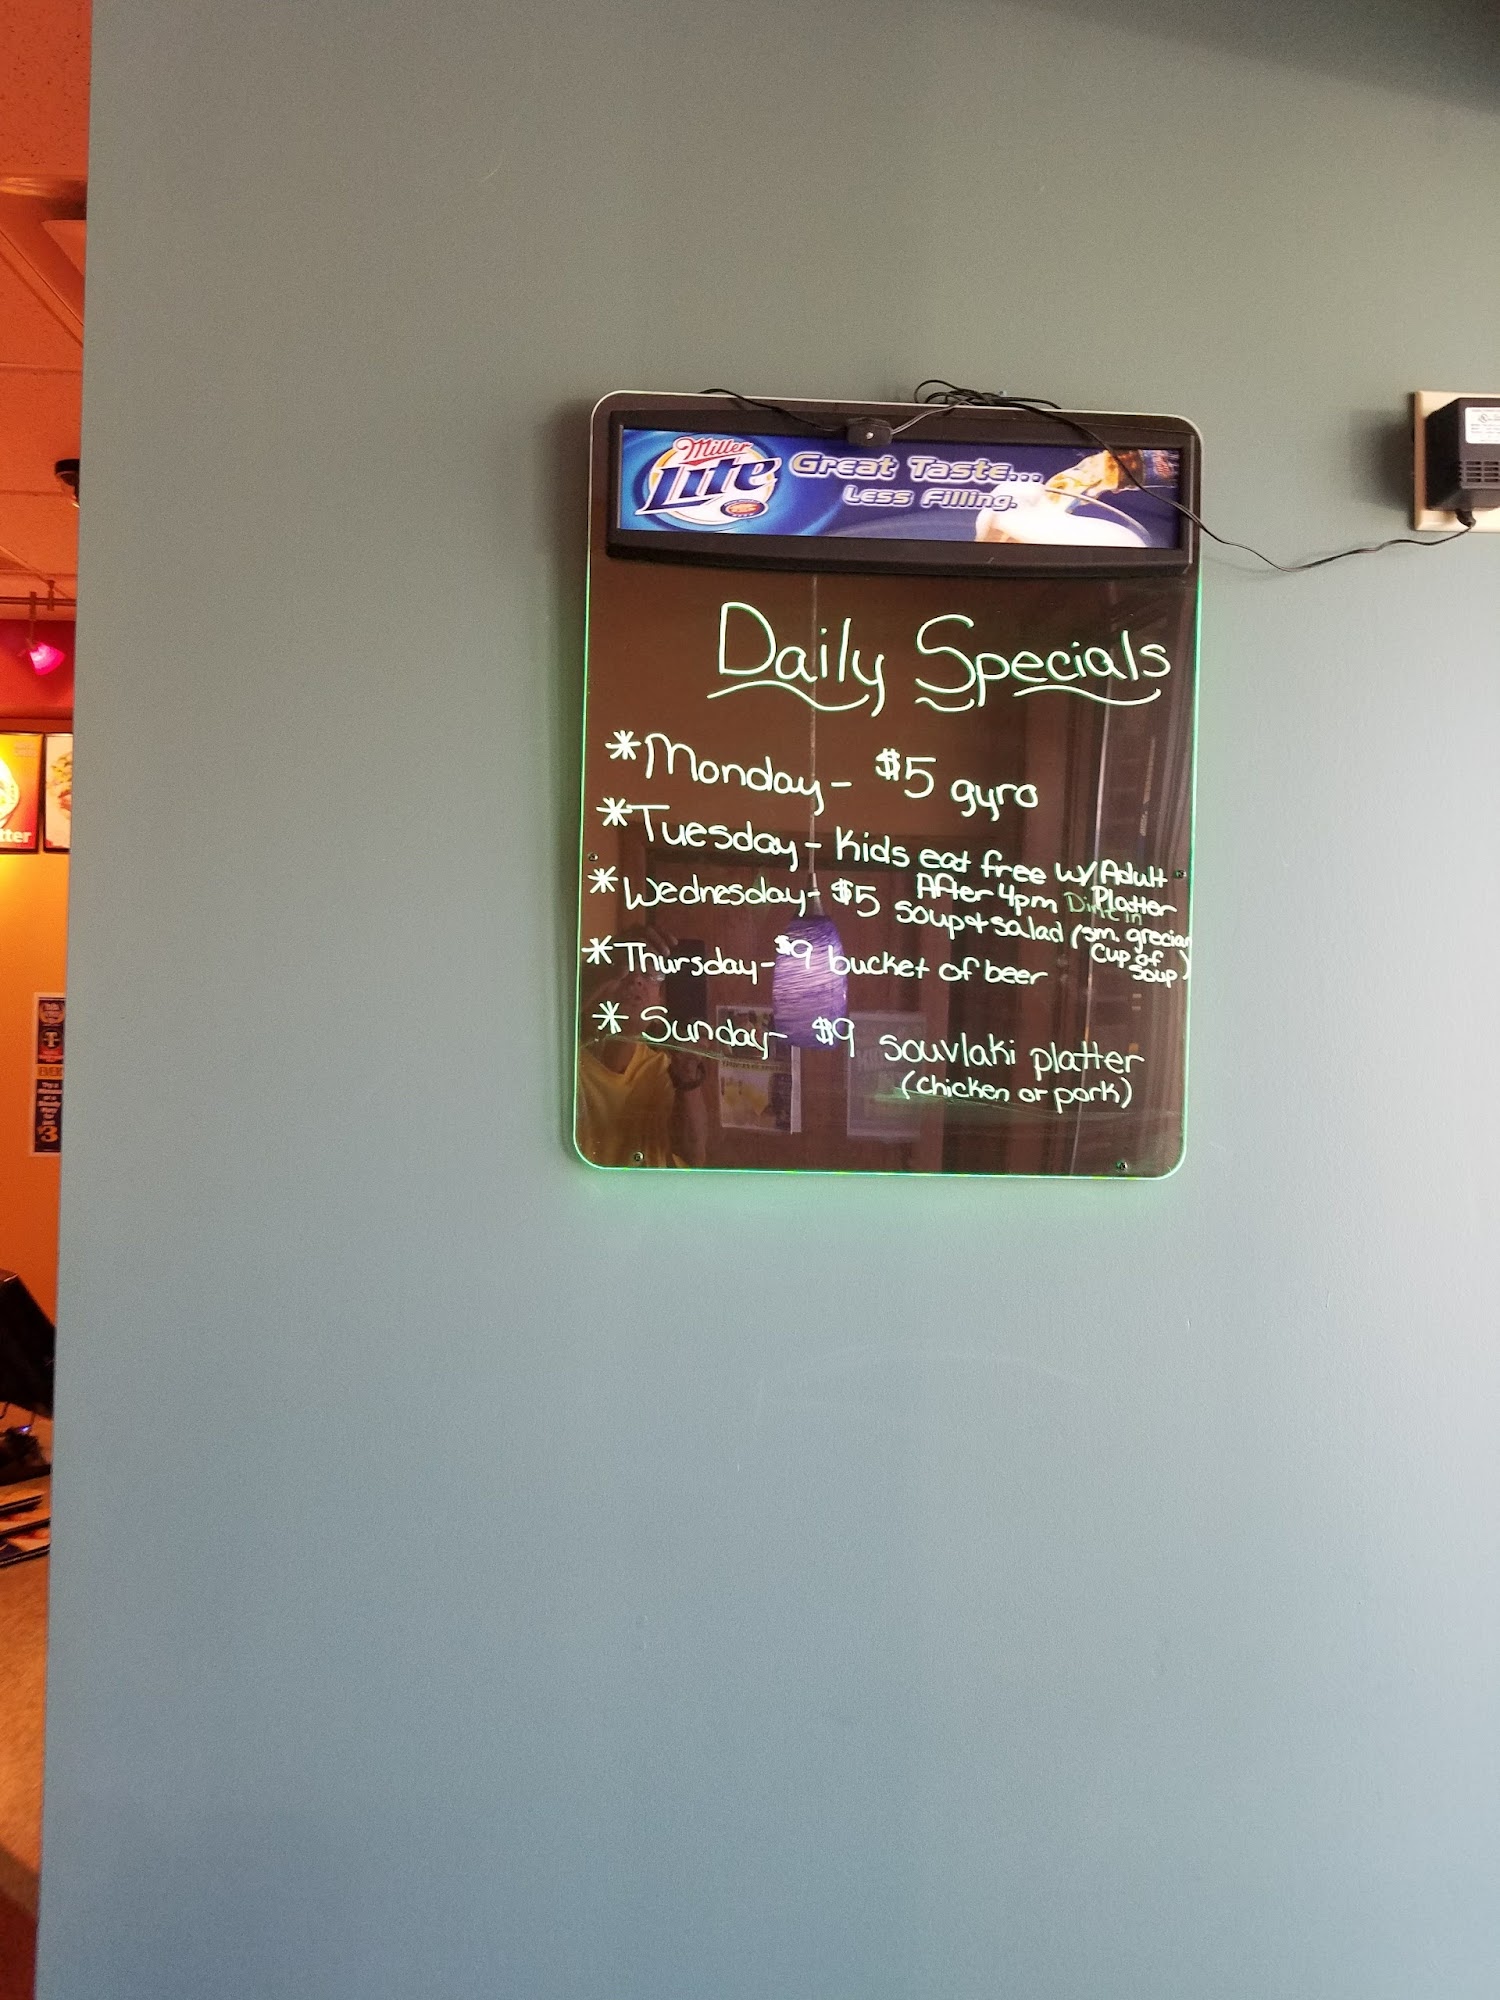 Miller
Lite
Great Taste...
Less Filling.
Daily Specials
*Monday - $5 gyro
*Tuesday - Kids eat free w/ Adult
After 4pm Dine in Platter
*Wednesday - $5 soup + salad (sm. grecian
Cup of
soup)
*Thursday - $9 bucket of beer
*Sunday - $9 souvlaki platter
(chicken or pork)
tter
EVERY
$3